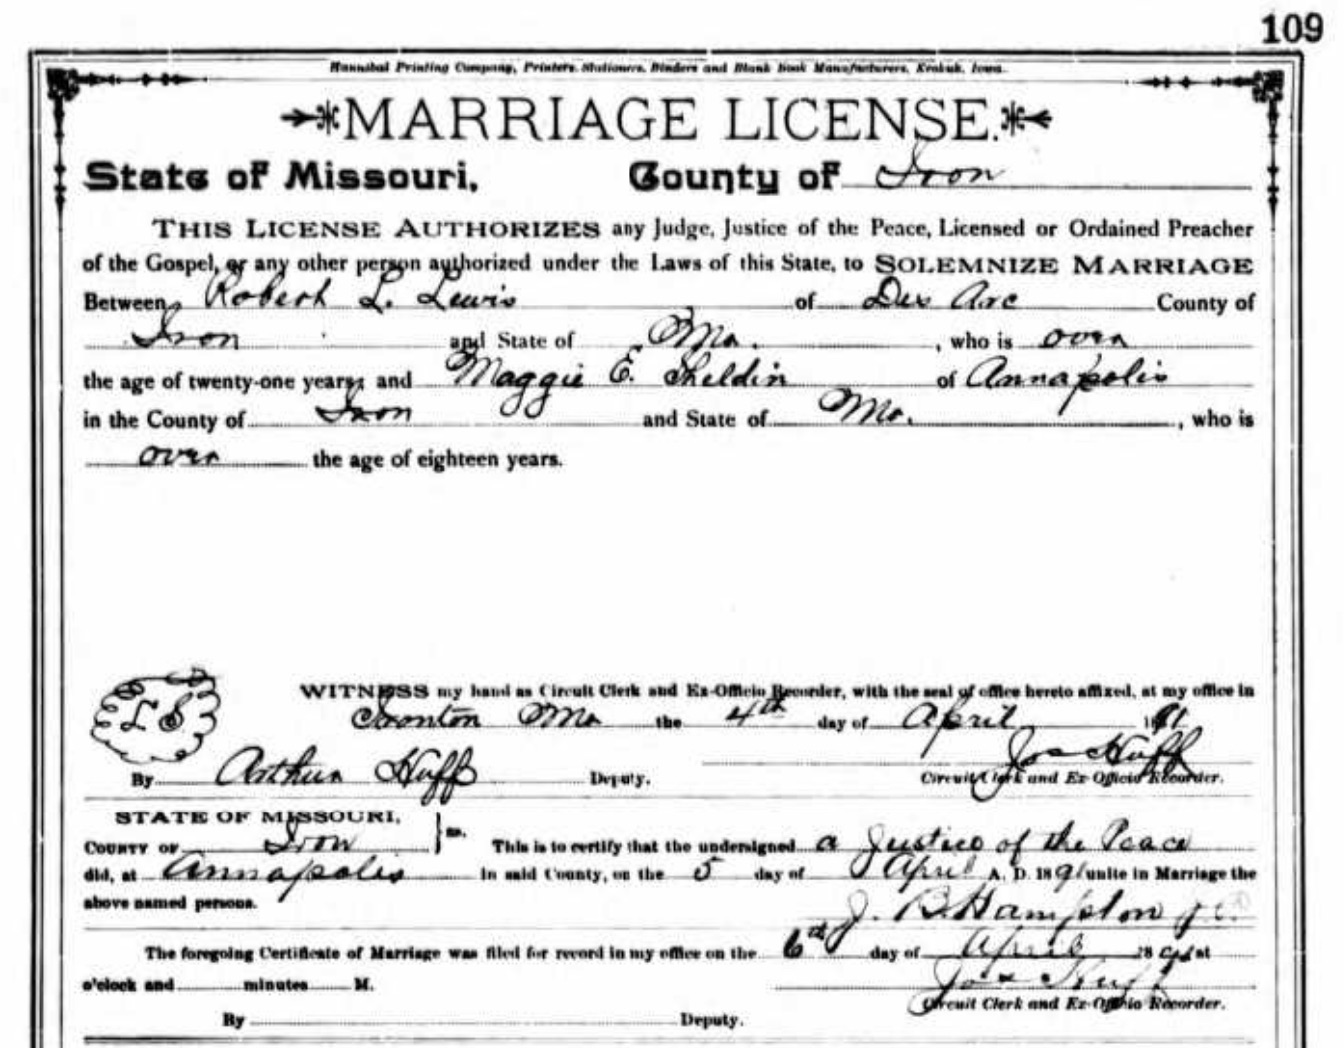 109
Hannibal Printing Company, Printers, Stationers, Binders and Blank Book Manufacturers, Keokuk, Iowa.
MARRIAGE LICENSE.
State of Missouri, County of Iron
THIS LICENSE AUTHORIZES any Judge, Justice of the Peace, Licensed or Ordained Preacher
of the Gospel, or any other person authorized under the Laws of this State, to SOLEMNIZE MARRIAGE
Between Robert L. Lewis of Des Arc County of
Iron and State of Mo. , who is over
the age of twenty-one years; and Maggie E. Sheldin of Annapolis
in the County of Iron and State of Mo. , who is
over the age of eighteen years.
WITNESS my hand as Circuit Clerk and Ex-Officio Recorder, with the seal of office hereto affixed, at my office in
LS Ironton Mo the 4th day of April 1891
Jos Huff
By Arthur Huff Deputy. Circuit Clerk and Ex-Officio Recorder.
STATE OF MISSOURI,
COUNTY OF Iron } ss. This is to certify that the undersigned a Justice of the Peace
did, at Annapolis in said County, on the 5 day of April A. D. 1891 unite in Marriage the
above named persons. J. B. Hampton J.P.
The foregoing Certificate of Marriage was filed for record in my office on the 6th day of April 1891 at
o'clock and minutes M. Jos Huff
Circuit Clerk and Ex-Officio Recorder.
By Deputy.